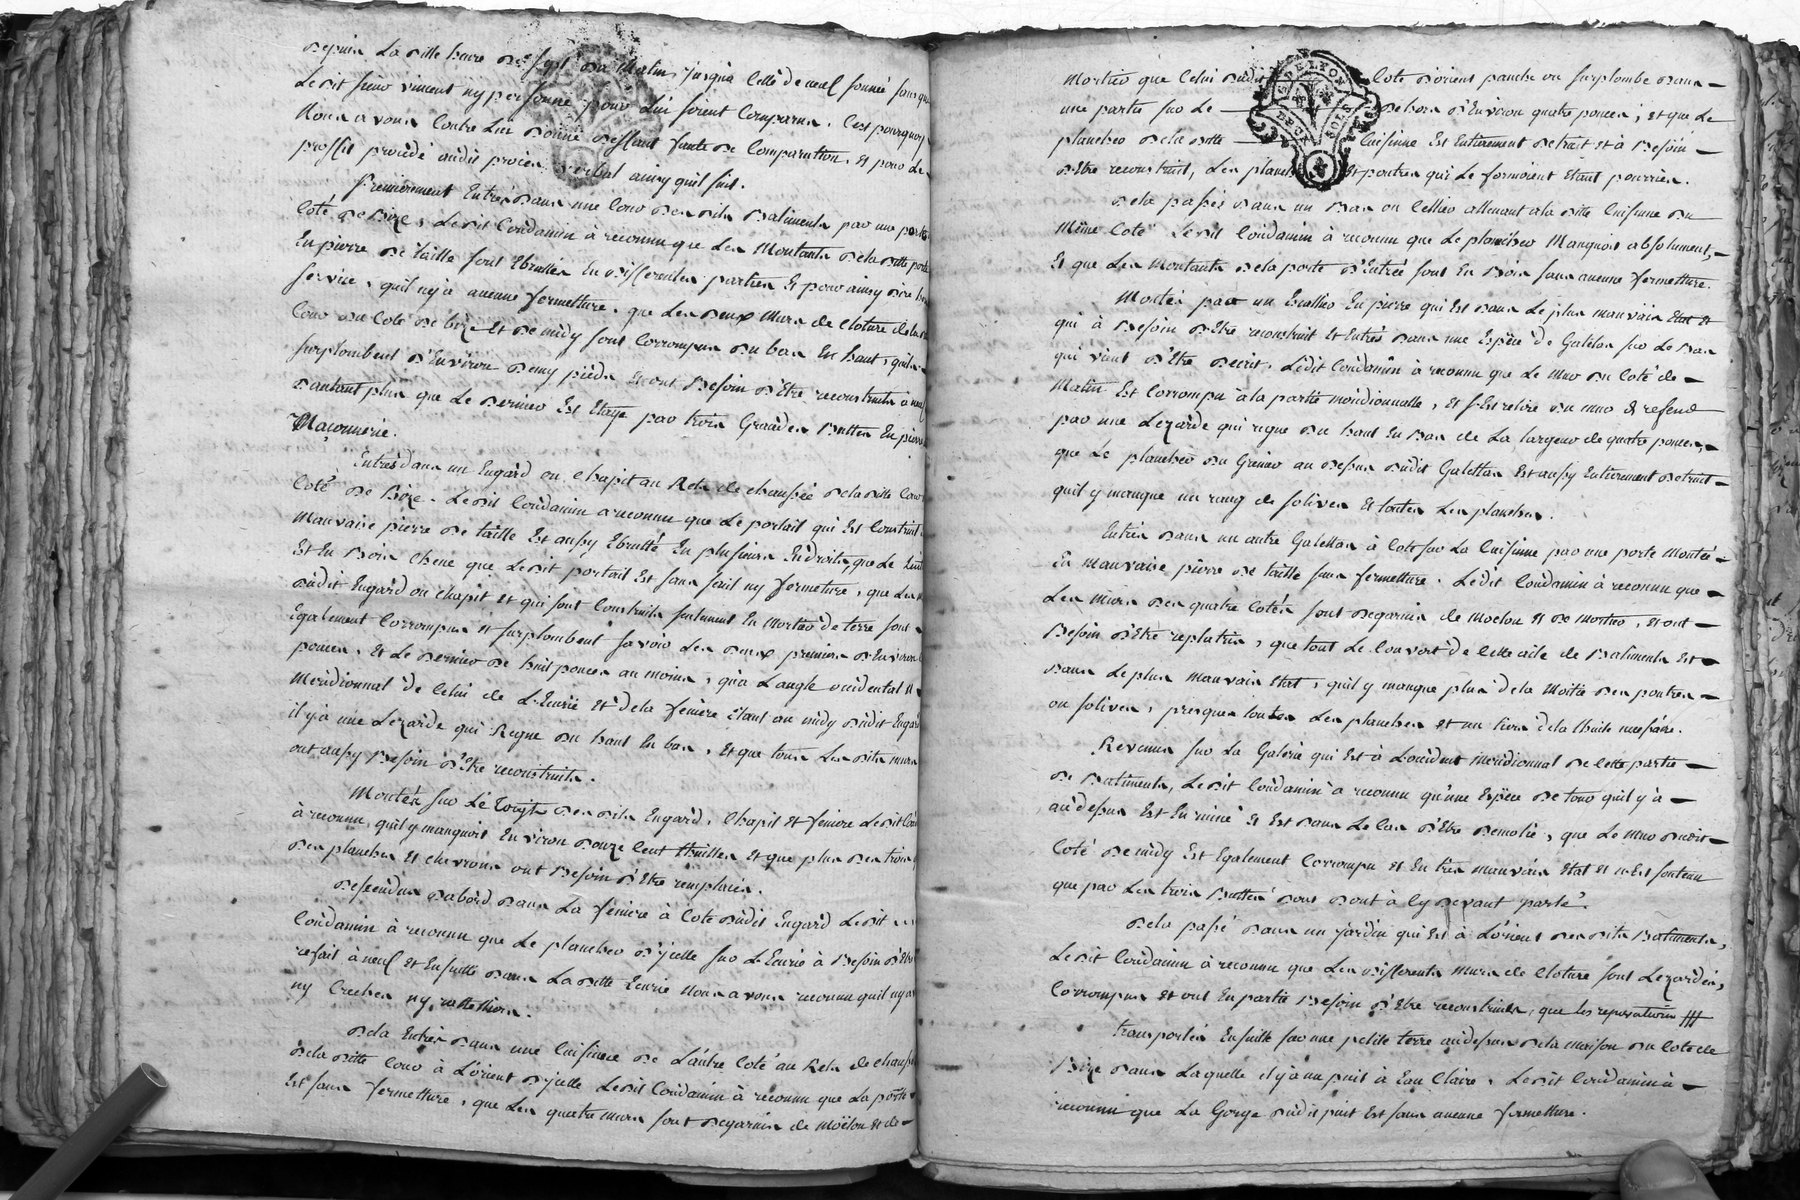 Depuis La ditte heure De sept Du Matin, jusqua Celle de neuf sonnée sans que
Ledit sieur vincent ny personne pour Lui soient Comparus. C'est pourquoy
Nous avons Contre Lui Donné Deffaut faute De Comparution, Et pour Le
proffit procédé audit procès verbal ainsy quil suit.
Premierement Entrés Dans une Cour Desdits Batiments par une porte
Coté De Bize, Ledit Condamin à reconnu que Les Montants Dela ditte porte
En pierre De taille sont Ebrullés En Differentes parties Et pour ainsy dire hors
service, quil ny a aucune fermetture, que Les Deux Murs de Cloture de la
Cour du Coté De bize Et De midy sont Corrompus Du bas En haut, quils
surplombent D'Environ Demy pieds Et ont Besoin D'Etre reconstruits à neuf
Dautant plus que Le Dernier Est Etayé par trois Grandes Buttes En pierre
Maçonnerie.
Entrés dans un Engard ou chapit au Rets de chaussée dela ditte Cour
Coté De Bize. Ledit Condamin a reconnu que Le portail qui Est Construit
Mauvaise pierre De taille Est aussy Ebrullé En plusieurs Endroits, que Le
Est En Bois chene que Ledit portail Est sans seuil ny fermeture, que Les
dudit Engard ou chapit Et qui sont Construits seulement En Mortier de terre sont
Egalement Corrompus Et surplombent savoir Les Deux premiers D'Environ
pouces, Et Le Dernier De huit pouces au moins, qu'à L'angle occidental Et
Meridionnal de Celui de L'Ecurie Et de la feniere Etant au midy dudit Engard
il y a une Lezarde qui Regne Du haut En bas, Et que tous Les dits murs
ont aussy Besoin D'Etre reconstruits.
Montés sur Le Toigts Desdits Engard, Chapit Et feniere Ledit
à reconnu quil y manquois Environ Douze Cent thuilles Et que plus Des trois
Des planches Et chevrons ont Besoin D'Etre remplacés.
Descendus Dabord Dans La feniere à Coté dudit Engard Ledit
Condamin à reconnu que Le plancher D'ycelle sur L'Ecurie à Besoin D'Etre
refait à neuf Et Ensuitte Dans La ditte Ecurie Nous avons reconnu quil ny a
ny Creches ny rattelliers.
Dela Entrés Dans une Cuisinne De L'autre Coté au Rets de chaussée
Dela ditte Cour à L'orient D'ycelle Ledit Condamin à reconnu que La porte
Est sans fermetture, que Les quatre murs sont Degarnis de Moëlon Et de
Mortier que Celui Dudit Coté D'orient panche ou surplombe Dans
une partie sur Le Dehors D'Environ quatre pouces, Et que Le
plancher Dela ditte Cuisinne Est Entierement Detruit Et à Besoin
D'Etre reconstruit, Les planches Et poutres qui Le formoient Etant pourries.
Dela passés Dans un Bas ou Cellier attenant à la ditte Cuisinne Du
Même Coté Ledit Condamin à reconnu que Le plancher Manquois absolument,
Et que Les Montants Dela porte D'Entrée sont En Bois sans aucune fermetture.
Montés par un Escallier En pierre qui Est Dans Le plus mauvais Etat Et
qui à Besoin D'Etre reconstruit Et Entrés Dans une Espece de Galetas sur Le Bas
qui vient D'Etre Decrit. Ledit Condamin à reconnu que Le Mur Du Coté de
Matin Est Corrompu à la partie meridionnalle, Et s'Est retiré Du mur de refend
par une Lezarde qui regne Du haut En Bas de La Largeur de quatre pouces,
que Le plancher Du Grenier au Dessus dudit Galettas Est aussy Entierement Detruit
quil y manque un rang de solives Et toutes Les planches.
Entrés Dans un autre Galettas à Coté sur La Cuisinne par une porte Montée
En mauvaise pierre De taille sans fermetture. Ledit Condamin à reconnu que
Les Murs Des quatre Cotés sont Degarnis de Moëlon Et De Mortier, Et ont
Besoin D'Etre replatris, que tout Le Couvert de Cette aile de Batiments Est
Dans Le plus Mauvais Etat, quil y manque plus de la Moitié Des poutres
ou solives, presques toutes Les planches Et un tiers de la thuile necessaire.
Revenus sur La Galerie qui Est à L'occident meridionnal De Cette partie
De Batiments, Ledit Condamin à reconnu qu'une Espece De tour quil y à
au dessus Est En ruine Et Est Dans Le Cas D'Etre Demolie, que Le Mur dudit
Coté De midy Est Egalement Corrompu Et En très mauvais Etat Et n'Est soutenu
que par Les trois Buttes Dont à Cy Devant parlé.
Dela passé Dans un jardin qui Est à L'orient Desdits Batiments,
Ledit Condamin à reconnu que Les Differents Murs de Cloture sont Lezardés,
Corrompus Et ont En partie Besoin D'Etre reconstruits, que les reparations
Transportés Ensuitte sur une petite terre au dessus dela maison Du Coté de
Bize Dans Laquelle il y à un puit à Eau Claire. Ledit Condamin à
reconnu que La Gorge dudit puit Est sans aucune fermetture.